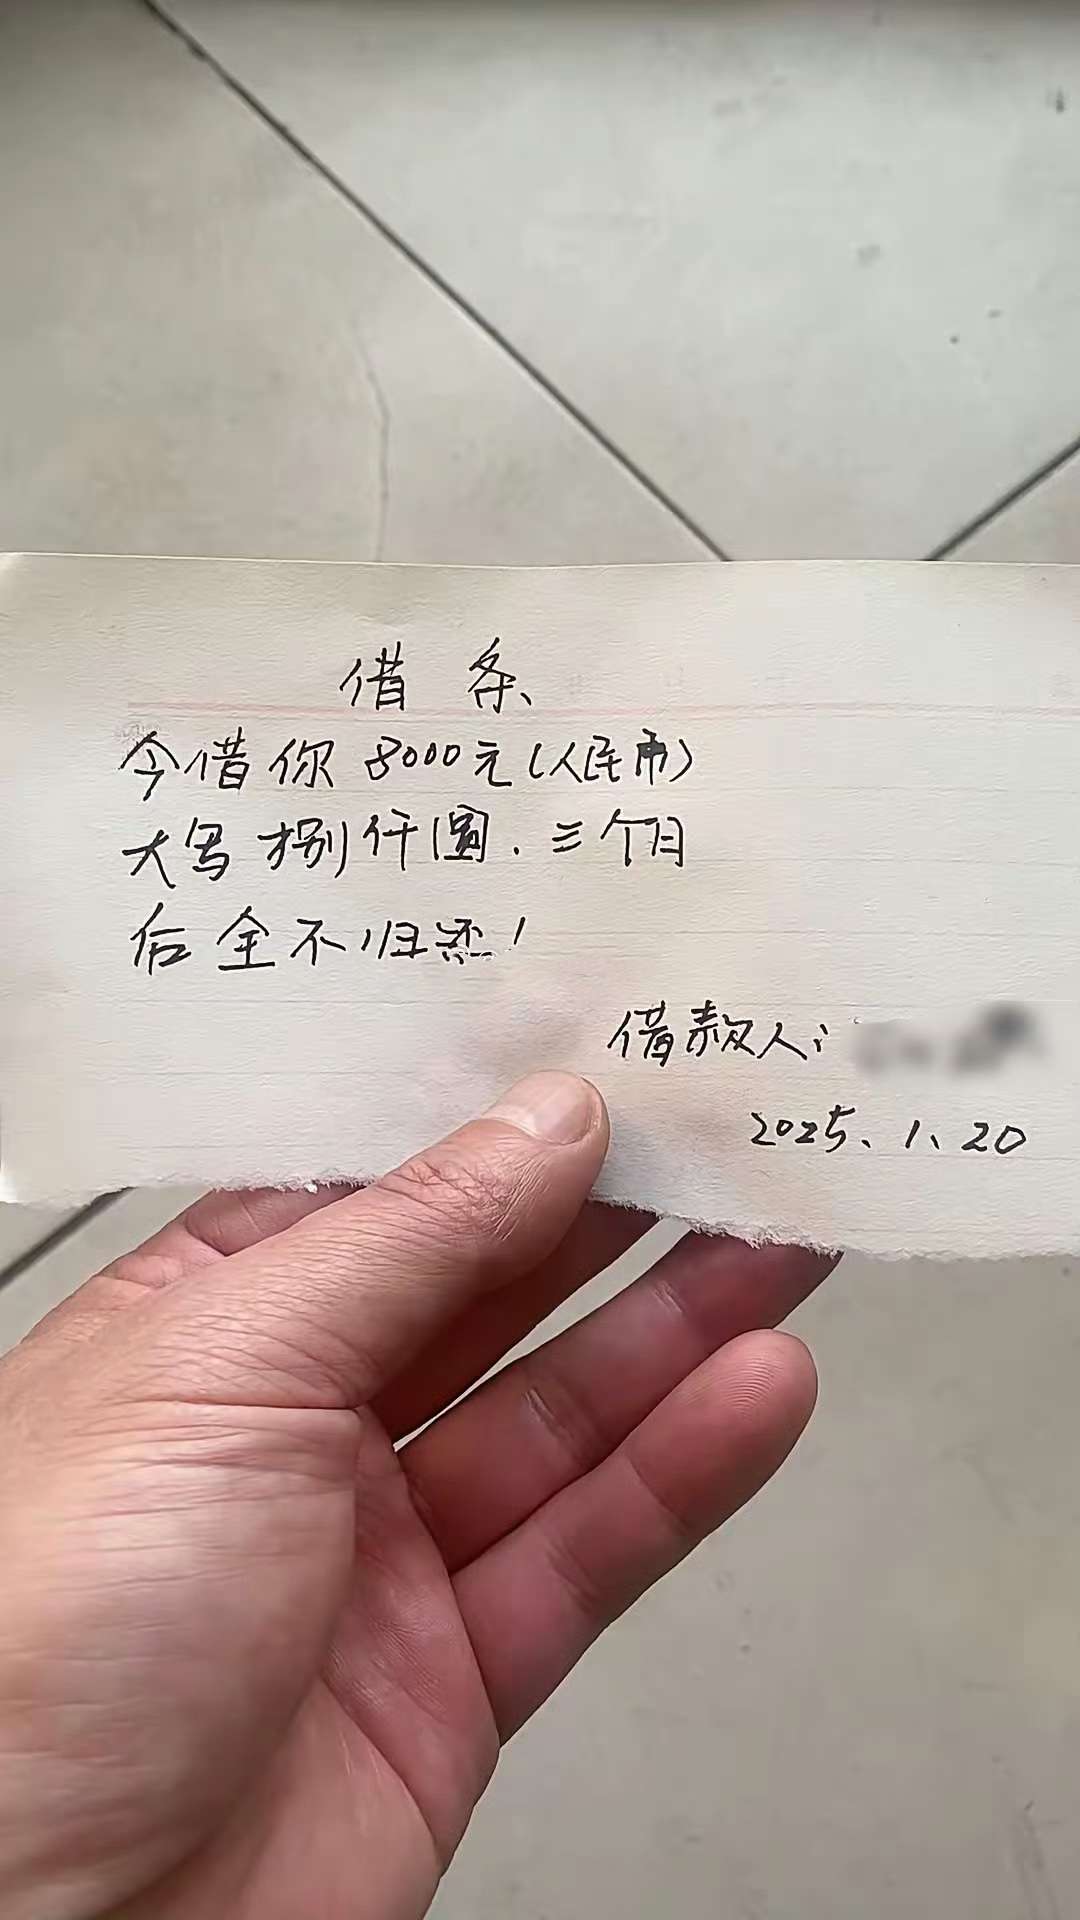 借条
今借你8000元(人民币)
大写捌仟圆.三个月
后全不归还!
借款人:
2025、1、20